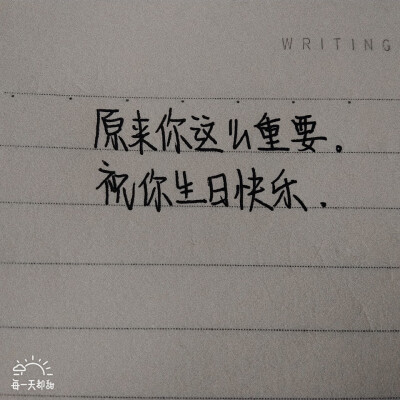 WRITING
原来你这么重要。
祝你生日快乐.
每一天都甜